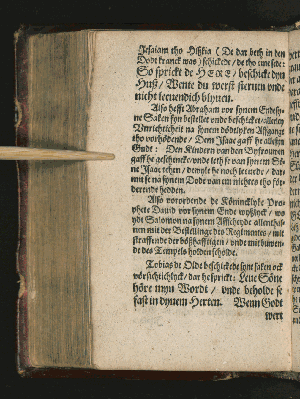 Jesaiam tho Hißkia (De dar beth in den
Dodt kranck was) schickede / de tho eme sede:
So sprickt de HERE / beschicke dyn
Huß / Wente du werst steruen unde
nicht leuendich blyuen.
Also hefft Abraham vor synem Ende syne
Saken
Vnrichticheit na synem dödtlyken Affgange
tho vorhödende / Dem Isaac gaff he alle syn
Gudt: Den Kindern van den Byfrouwen
gaff he geschencke / unde leth se van synem Sö-
ne Isaac tehen / dewyle he noch leuede / dar
mit se na synem Dodt van em nichtes tho fö-
derende hedden.
Also vorordende de Köninckl​yke Pro-
phete David vor synem Ende wyßlyck / wo
ydt Salomon na synem Affscheyde allenthal-
uen mit der Bestellinge des Regimentes / mit
straffende der bößhafftigen / unde mit buwen-
de des Tempels holden scholde.
Tobias de Olde beschickede syne saken ock
vörsichtichlyck / dar he sprickt: Leue Söne
höre myn Wordt / unde beholdt se
fast in dynem Herten. Wenn Godt
wert